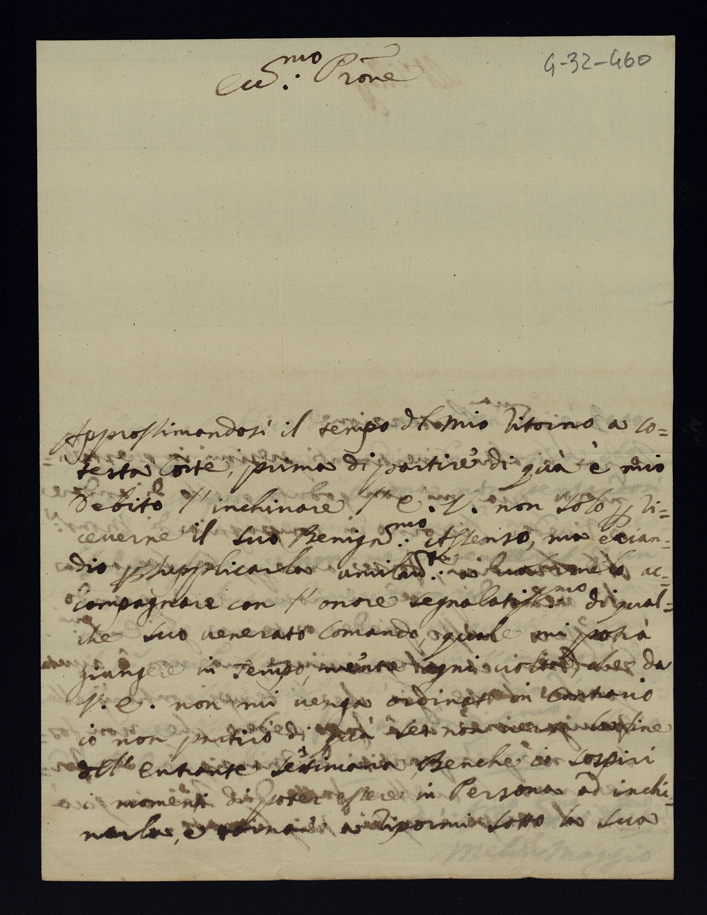 G-32-G60
Ecc.mo Prone
Approssimandosi il tempo del mio ritorno a co=
testa Corte, prima di partire di quà è mio
debito l'inchinare l' E. V. non solo p ri=
ceverne il suo Benign.mo Assenso, ma etian=
dio p supplicarla
compagnare con l'onore segnalatissmo di qual=
che suo venerato Comando, quale mi potrà
giungere in tempo, mentre ogni da
V. E. non mi venga ordinato in Contrario
io non partirò di quà se non verso la fine
dell'entrante settimana, Benche io sospiri
i momenti di poter essere in Persona ad inchi=
narla, e a riporrmi sotto la sua